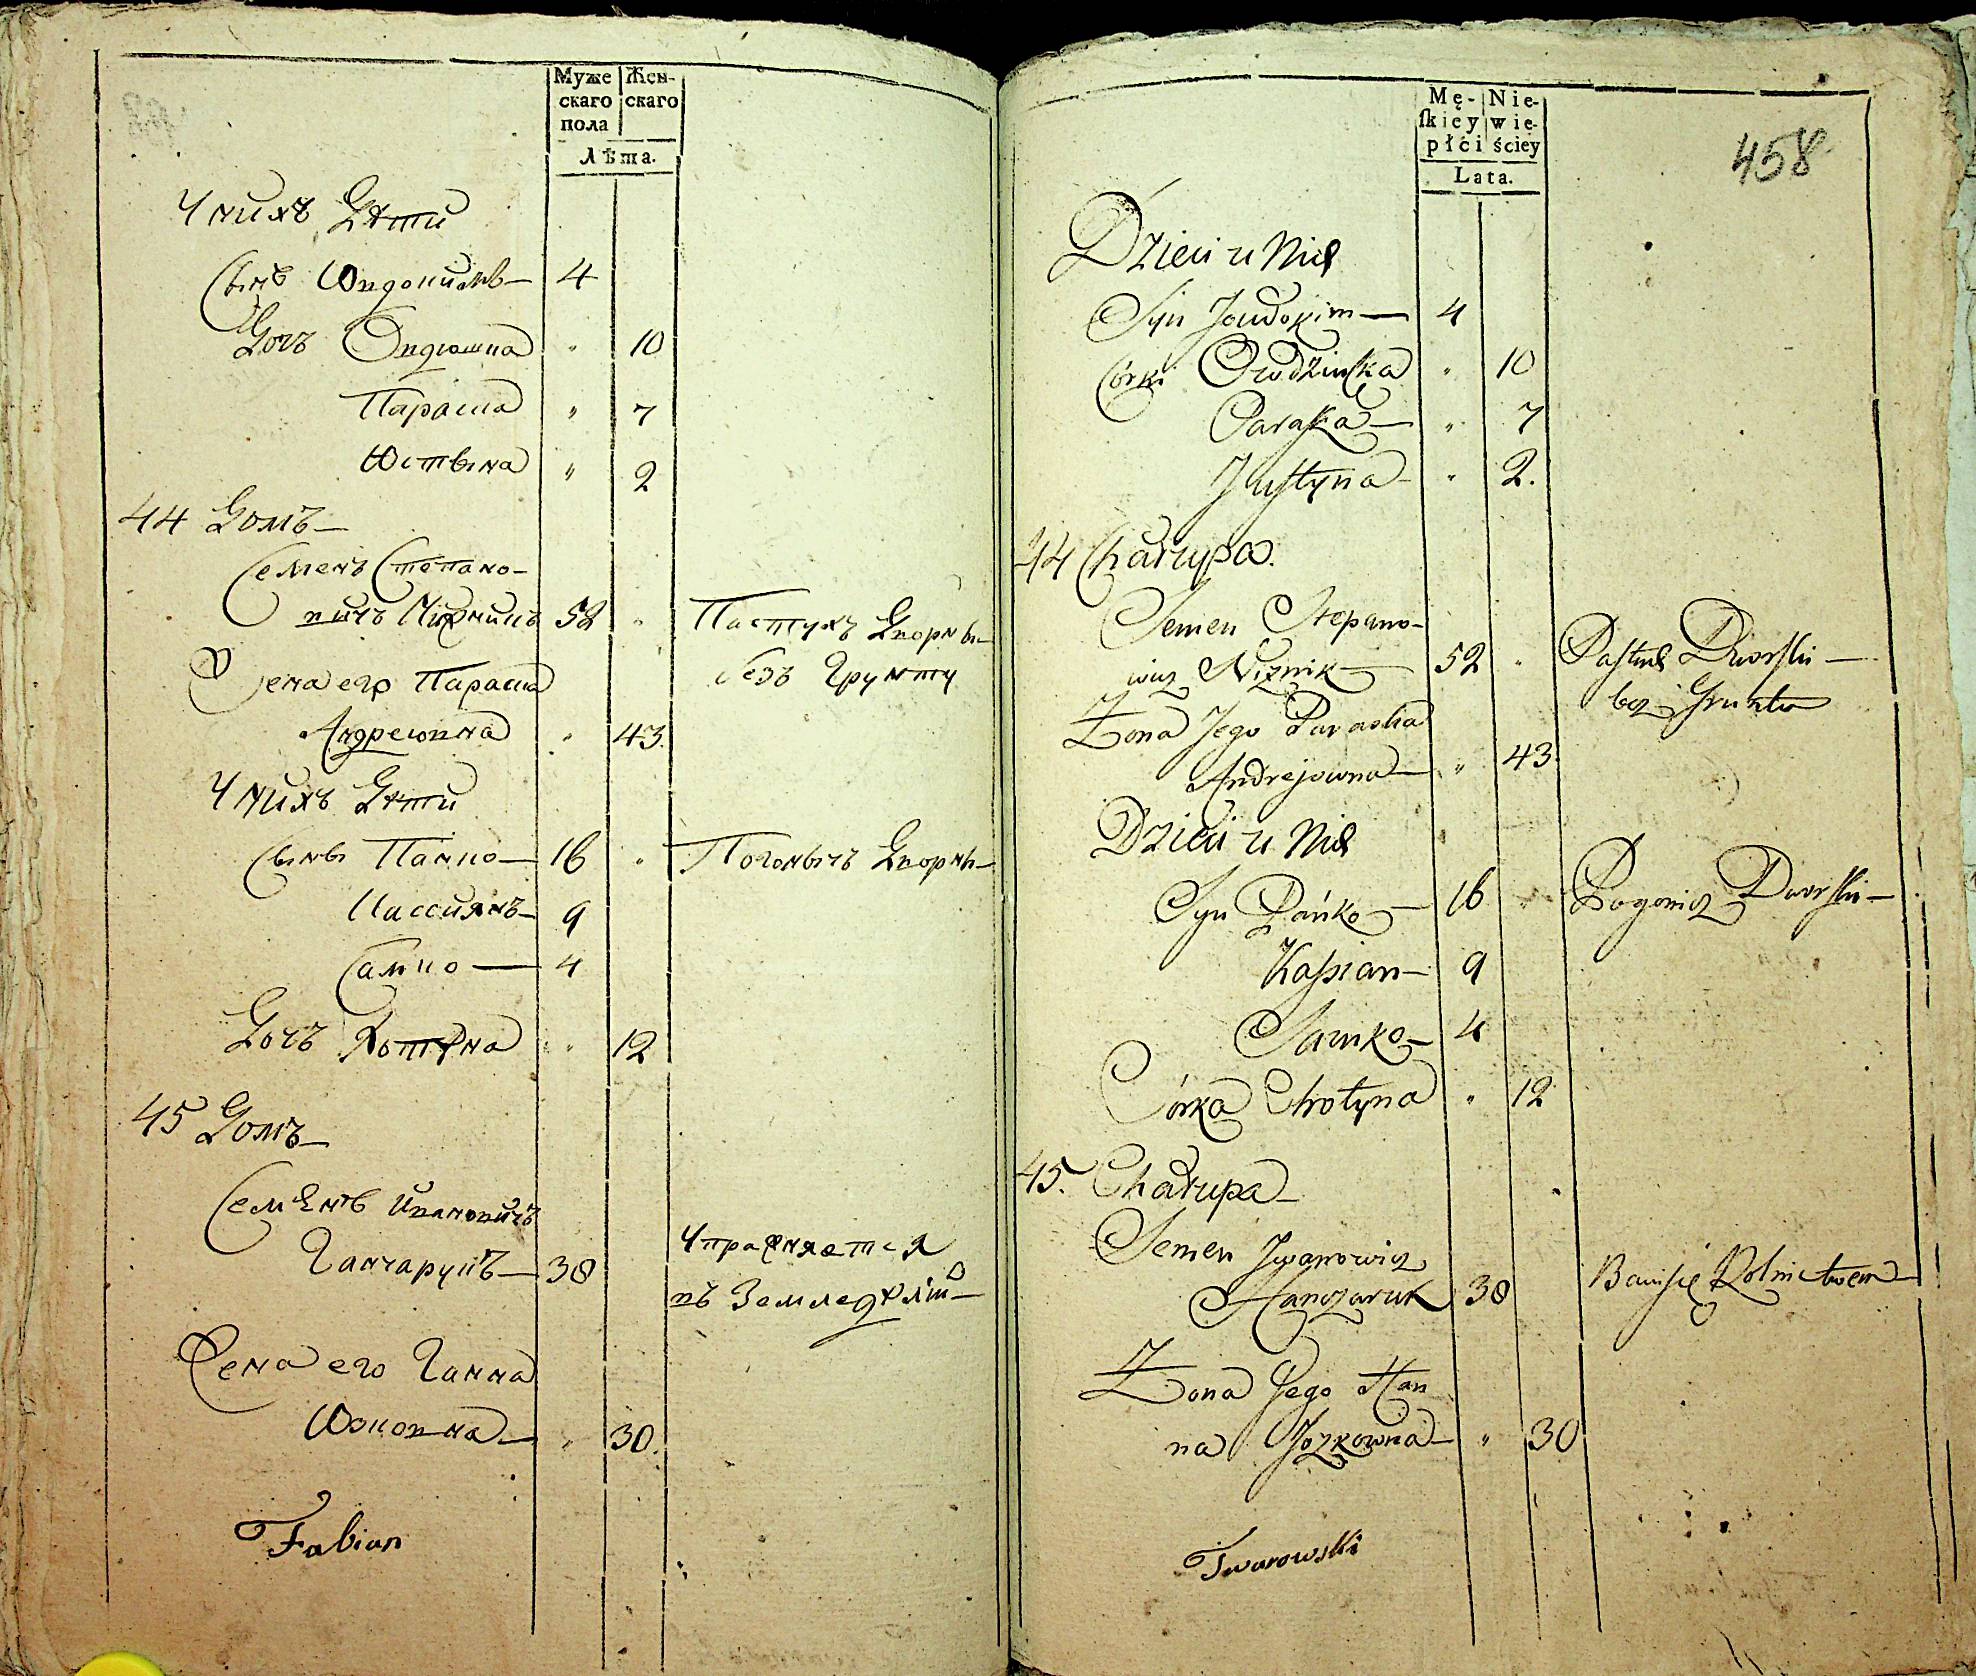 Муже
скаго
пола
Жен-
скаго
Лѣта.
У нихъ Дѣти
СынъЮвдокимъ — 4
Дочь Овдюшка " 10
Параска " 7
Юстына " 2
44 Домъ —
Семенъ Степано-
вичъ Нѣжникъ 52 " Пастухъ Дворны
Жена его Параска без Грунту
Андреювна " 43.
У нихъ Дѣти
Сынъ Панко — 16 " Погонычъ Дворны
Кассиянъ — 9
Самко — 4
Дочь Хотына " 12
45 Домъ —
Семенъ Ивановичъ
Ганчарукъ — 38 Упражняется
въ Земледѣлии
Жена его Ганна
Юзковна — " 30.
Fabian
Mę-
skiey
płći
Nie-
wie-
ściey
Lata.
458
Dzieci u Nich
Syn Jowdokim — 4
Córki Owdziuszka " 10
Paraska — " 7
Justyna — " 2.
44 Chałupa.
Semen Stepano-
wicz Niznik — 52 " Pastuch Dworski —
Żona Jego Paraska bez Gruntu
Andrejowna — " 43
Dzieci u Nich
Syn Pańko — 16 " Pogonicz Dworski —
Kassian — 9
Samko — 4
Córka Chotyna " 12
45. Chałupa —
Semen Jwanowicz
Hanczaruk 38 Bawi się Rolnictwem
Żona Jego Han
na Jozkowna — " 30
Twarowski